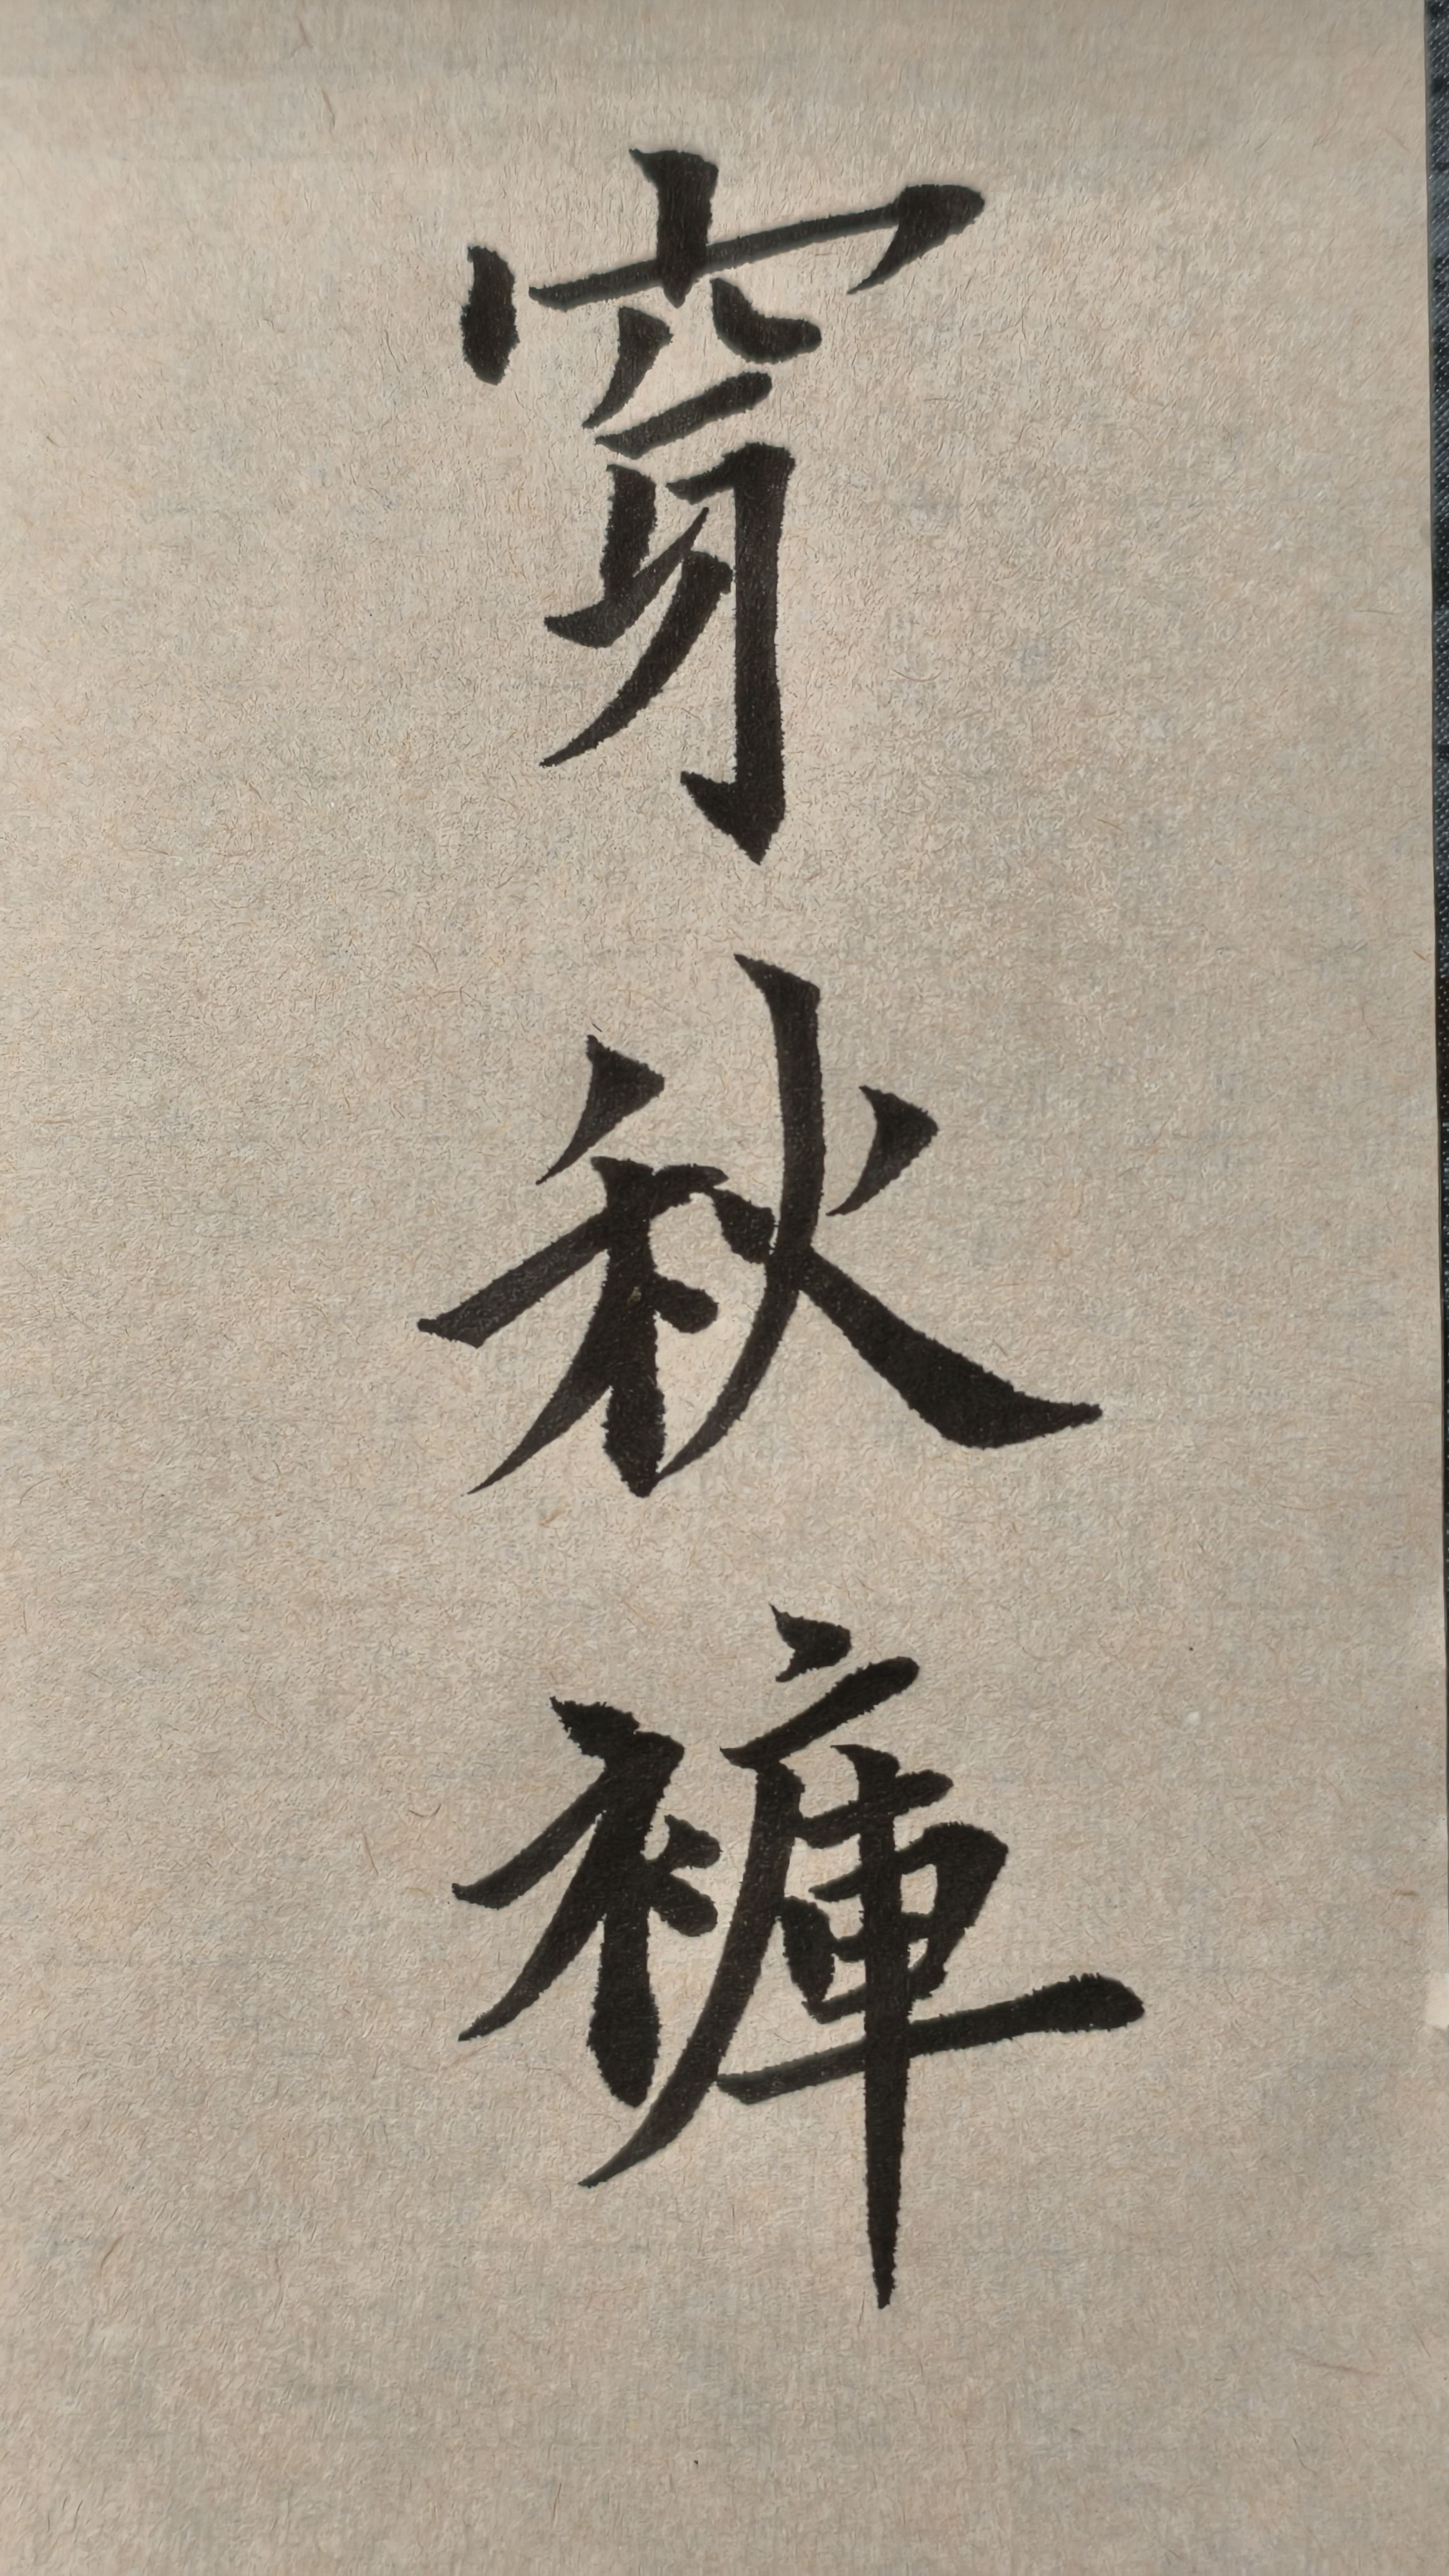 穿秋褲